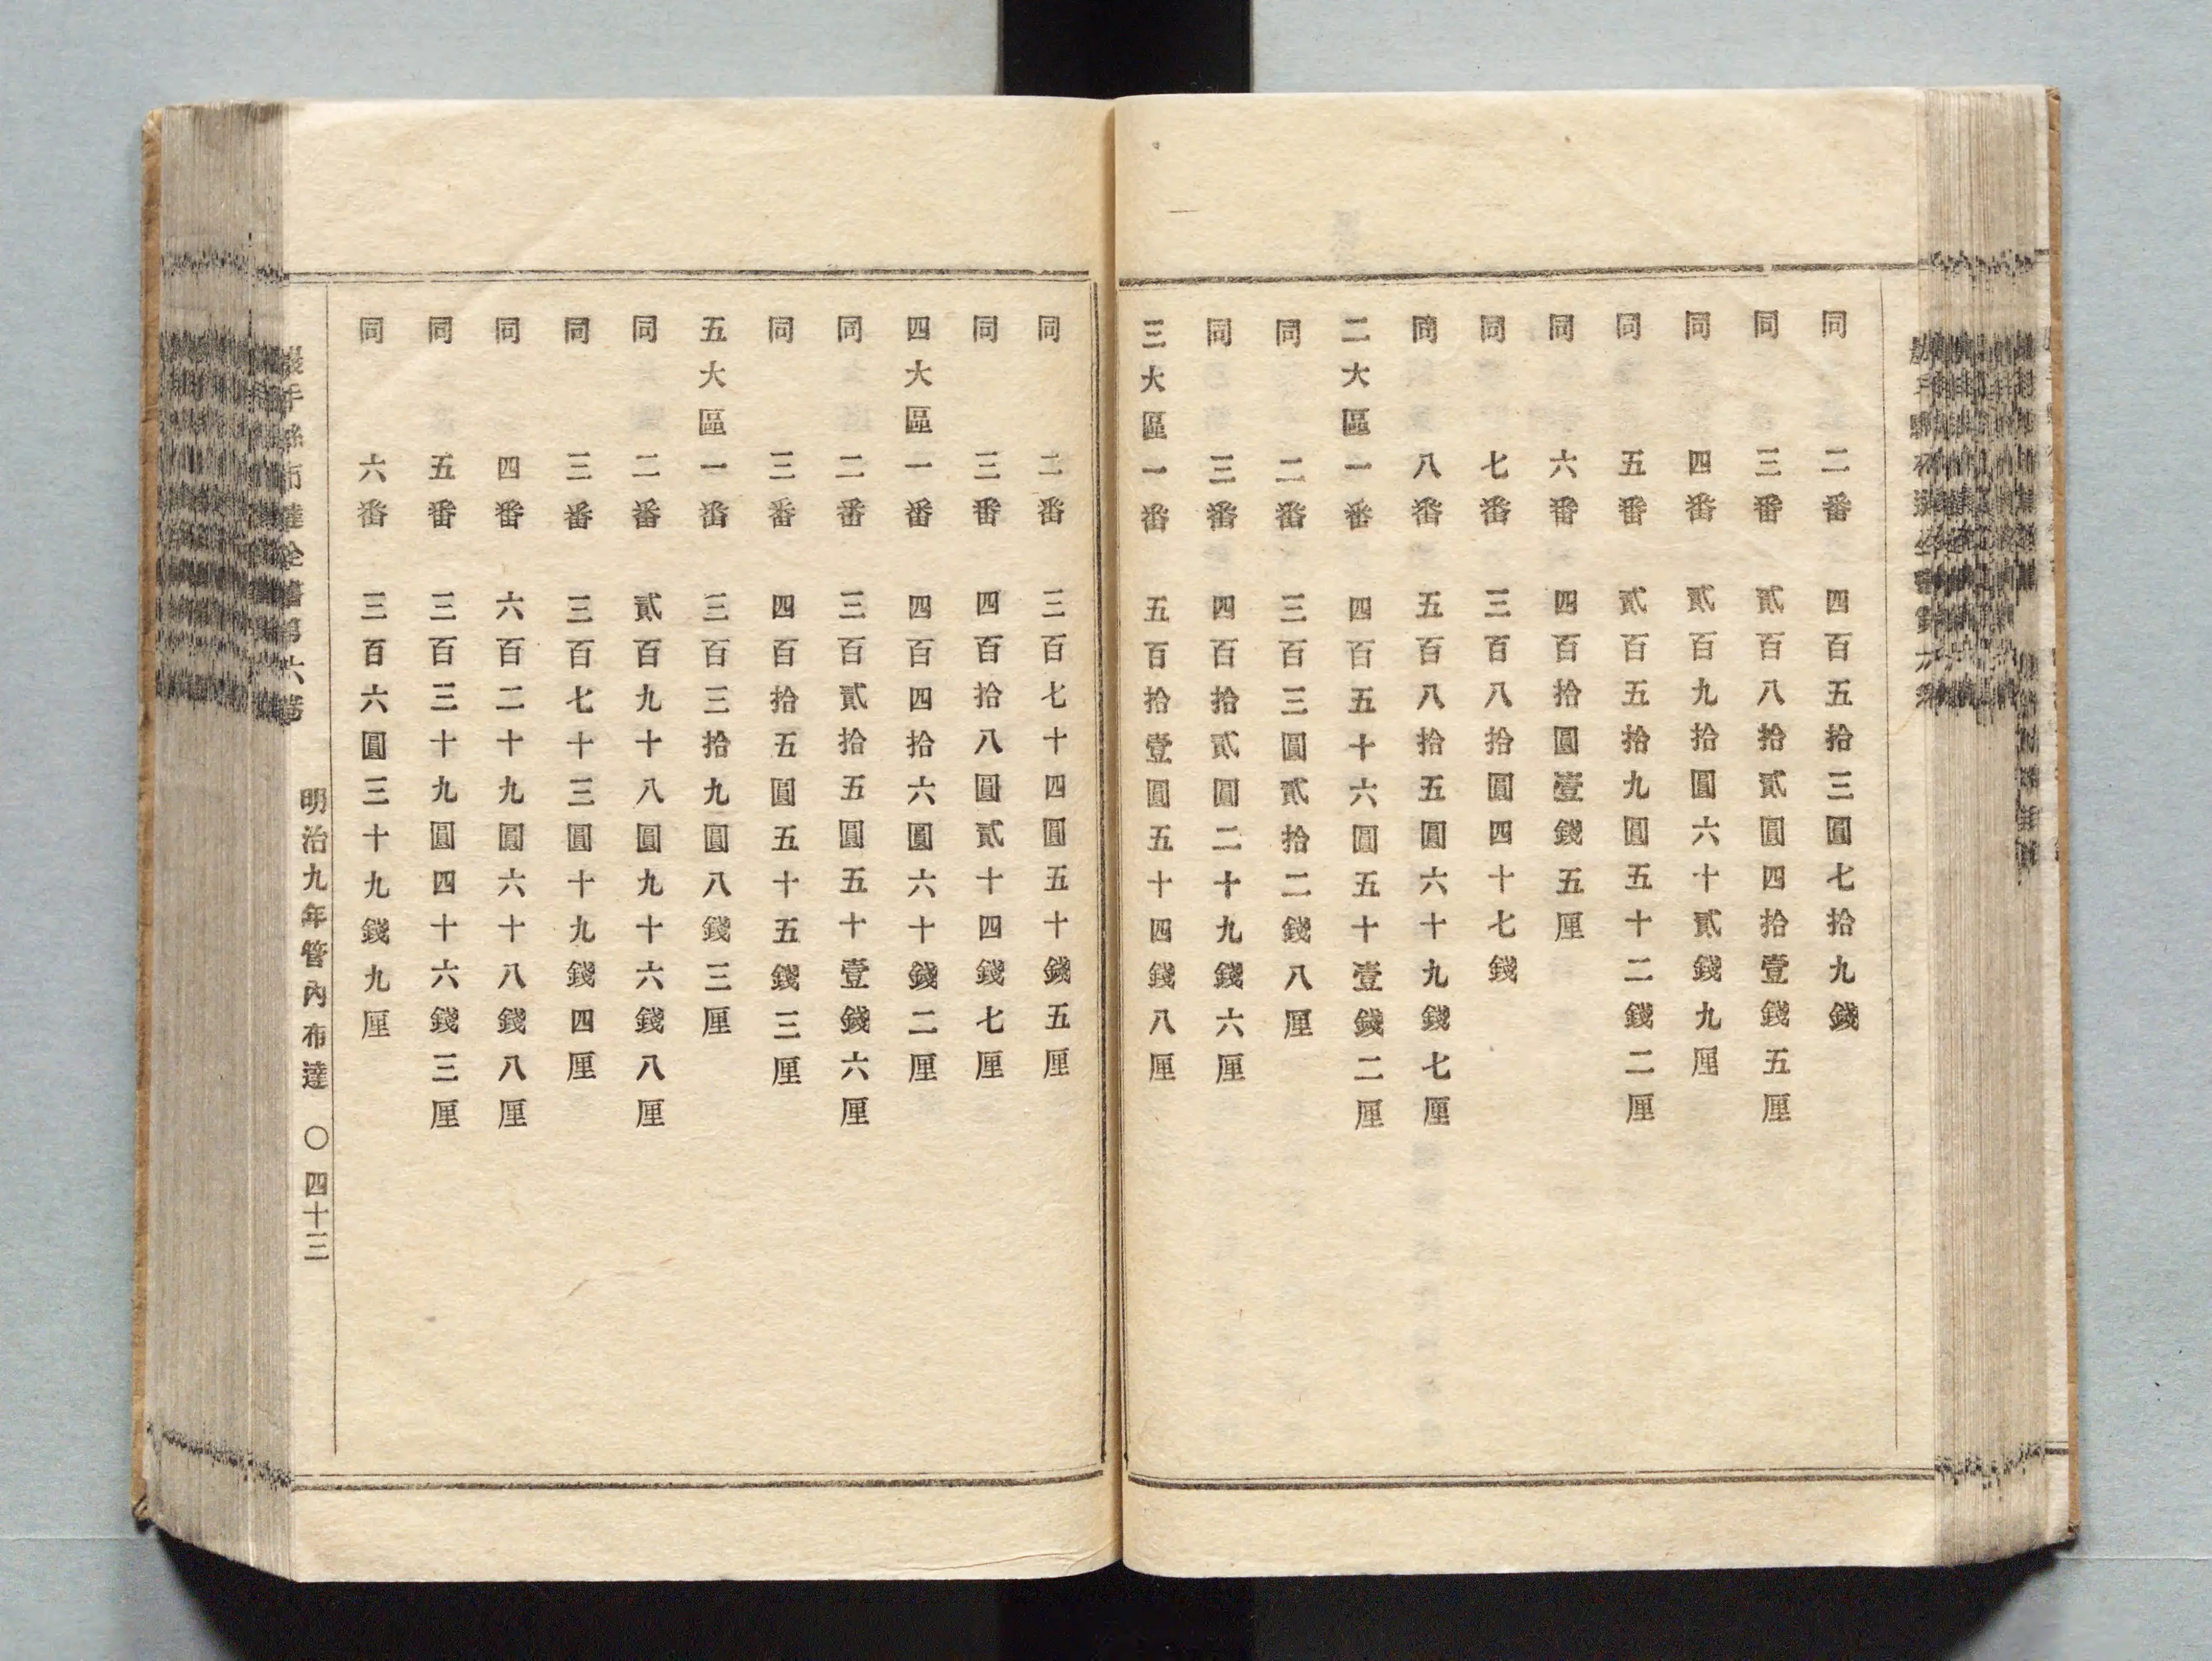 同　二番　四百五拾三圓七拾九錢
同　三番　貳百八拾貳圓四拾壹錢五厘
同　四番　貳百九拾圓六十貳錢九厘
同　五番　貳百五拾九圓五十二錢二厘
同　六番　四百拾圓壹錢五厘
同　七番　三百八拾圓四十七錢
同　八番　五百八拾五圓六十九錢七厘
二大區一番　四百五十六圓五十壹錢二厘
同　二番　三百三圓貳拾二錢八厘
同　三番　四百拾貳圓二十九錢六厘
三大區一番　五百拾壹圓五十四錢八厘
同　二番　三百七十四圓五十錢五厘
同　三番　四百拾八圓貳十四錢七厘
四大區一番　四百四拾六圓六十錢二厘
同　二番　三百貳拾五圓五十壹錢六厘
同　三番　四百拾五圓五十五錢三厘
五大區一番　三百三拾九圓八錢三厘
同　二番　貳百九十八圓九十六錢八厘
同　三番　三百七十三圓十九錢四厘
同　四番　六百二十九圓六十八錢八厘
同　五番　三百三十九圓四十六錢三厘
同　六番　三百六圓三十九錢九厘
明治九年管內布達　〇　四十三